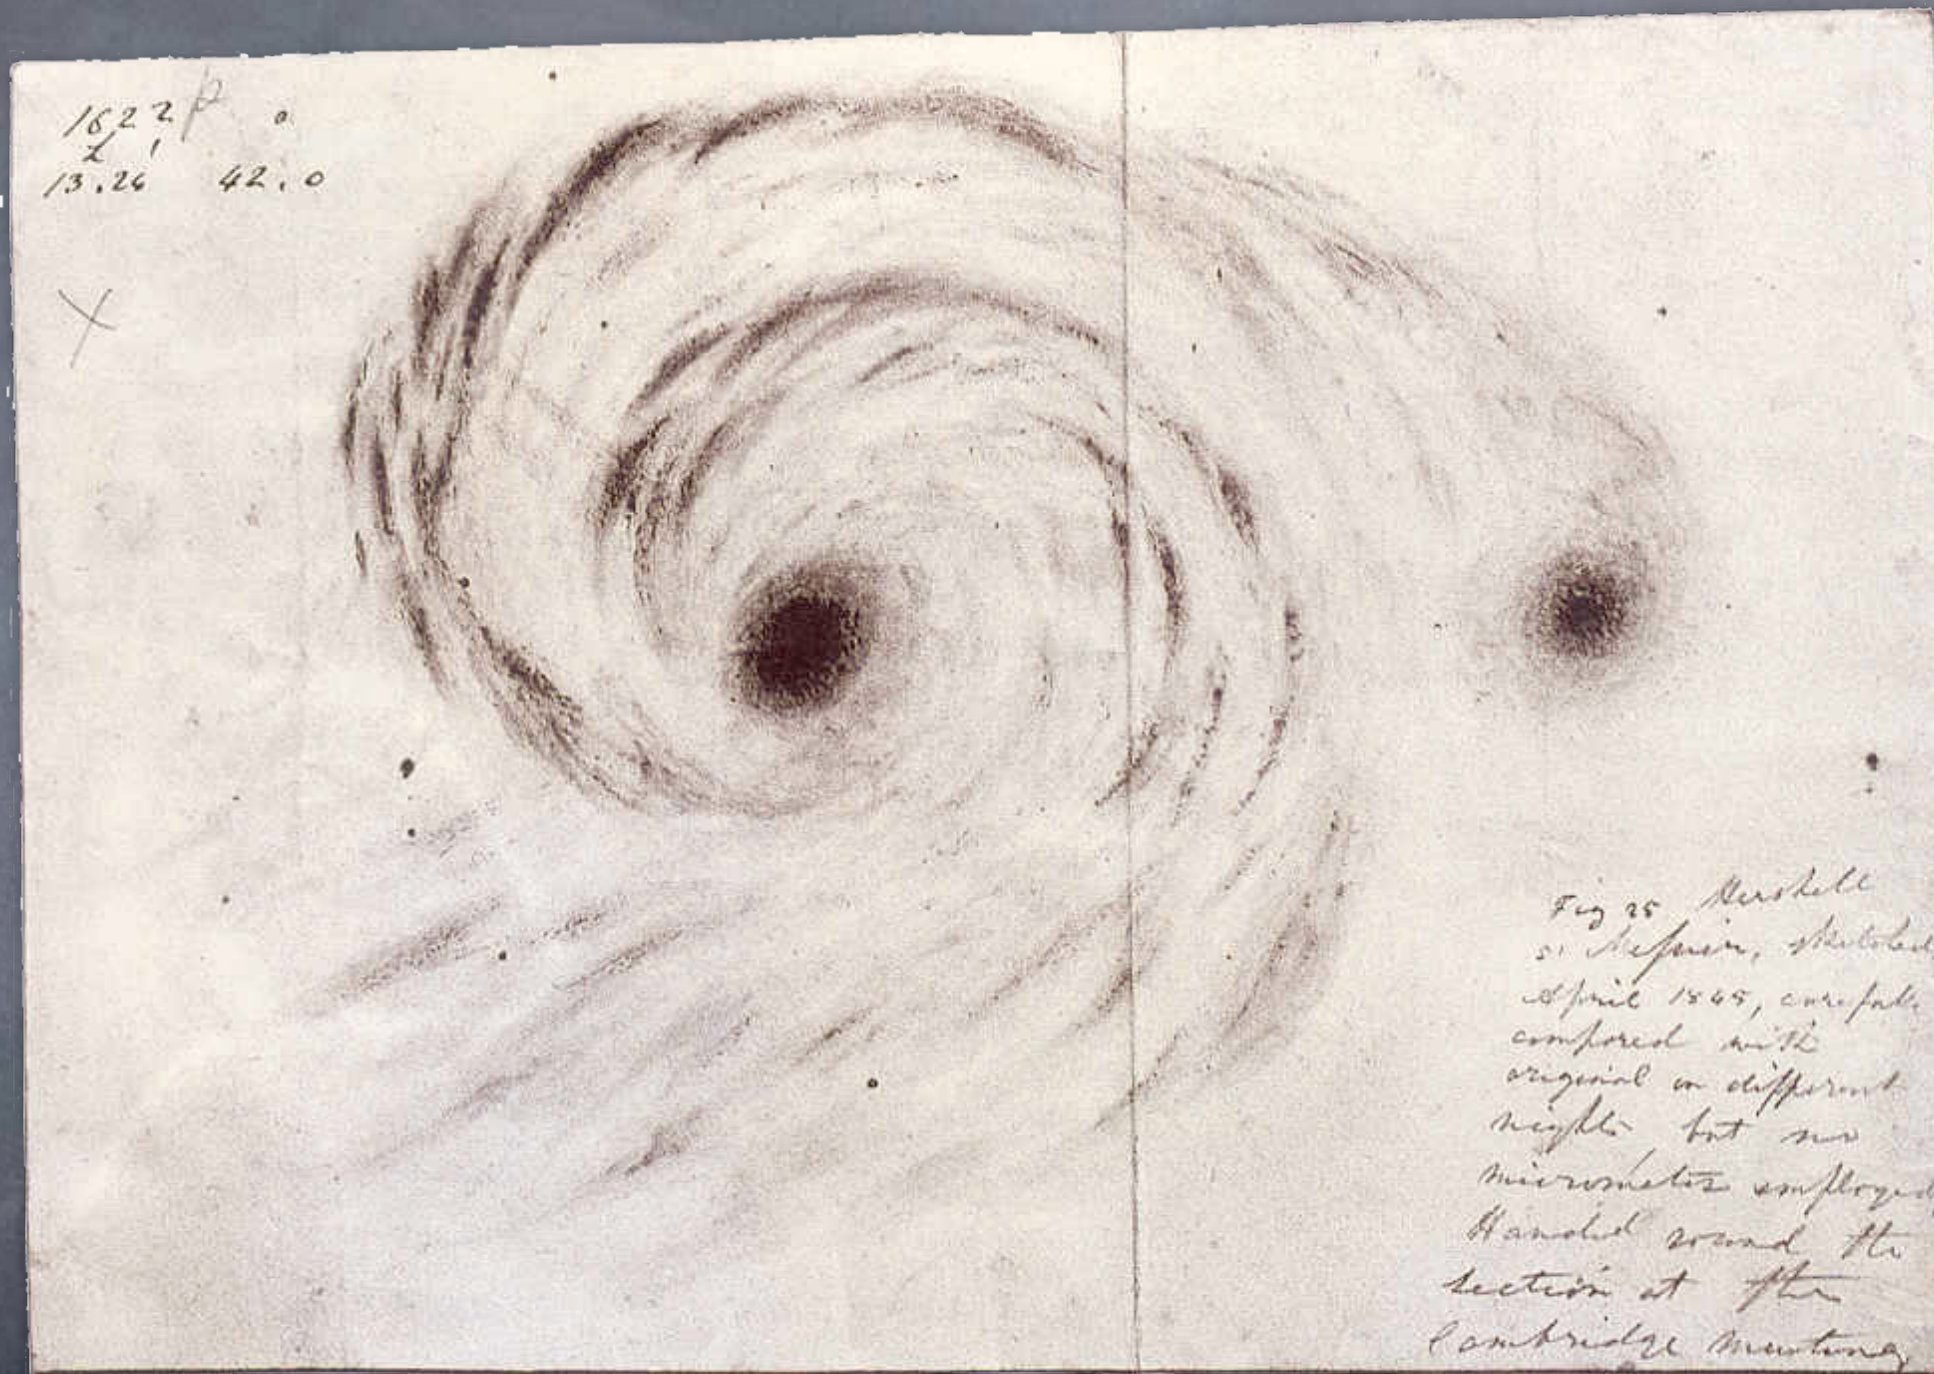 1622
13.26 42.0
Fig 25 Herschell
51 Messier, sketched
April 1845, carefully
compared with
original on different
nights, but no
micrometer employed
Handed round the
section at the
Cambridge meeting